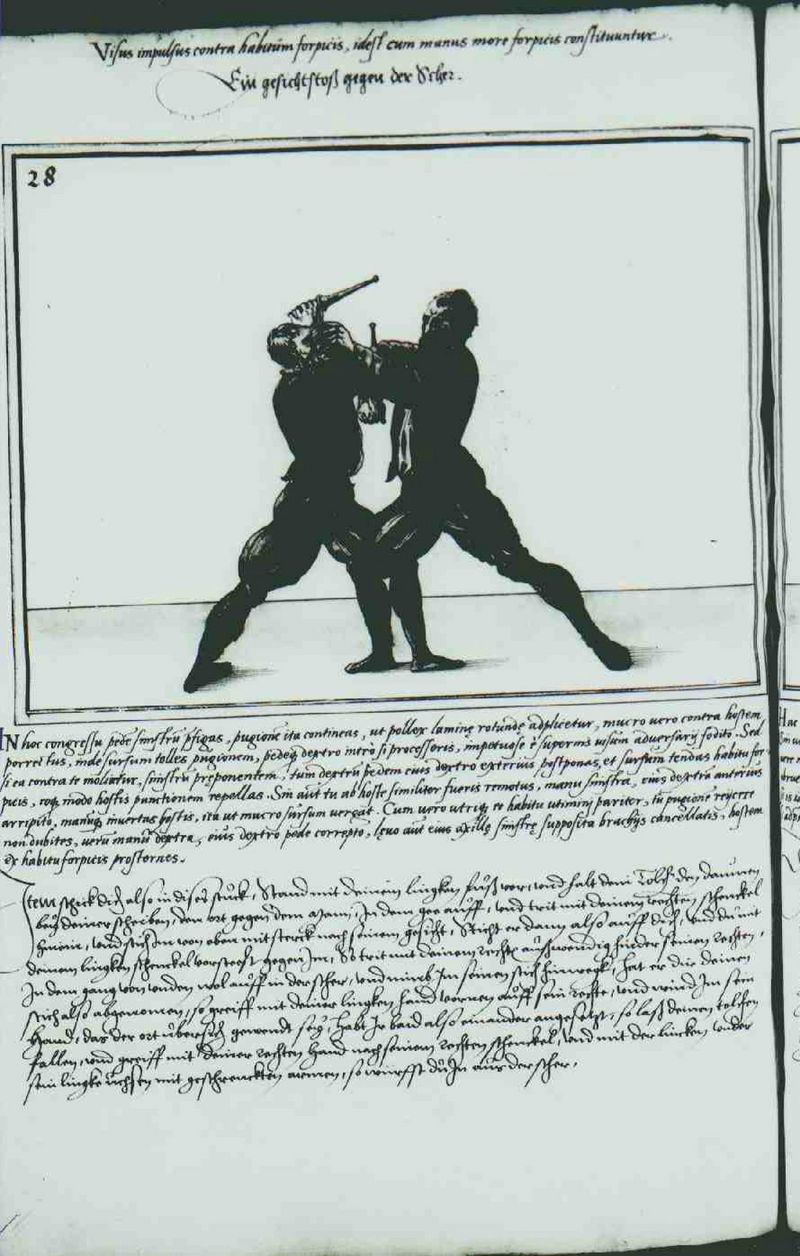 Visus impulsus contra habitum forpicis, idest cum manus more forpicis constituuntur.
Ein gesichtstoß gegen der Scher.
28
IN hoc congressu pede sinistru pfigas, pugione ita contineas, ut pollex laminę rotundę adplicetur, mucro uero contra hostem
porrectus, inde sursum tolles pugionem, pedeq dextro intro si processeris, impetuose è supernis uisum aduersarij fodito. Sed
si ea contra te moliatur, sinistru pręponentem, tum dextru pedem eius dextro exterius postponas, et sursum tendas habitu for
picis, eoq modo hostis punctionem repellas. Sin aut tu ab hoste similiter fueris remotus, manu sinistra, eius dextra anterius
arripito, manuq inuertas hostis, ita ut mucro sursum uergat. Cum uero utriq eo habitu utimini pariter, tu pugione reijcere
non dubites, uerum manu dextra, eius dextro pede correpto, lęuo aut eius axillę sinistrę supposita brachijs cancellatis, hostem
ex habitu forpicis prosternes.
Item schick dich also in diser stuck, Stand mit deinem lingken fuß vor, vnd halt dein Tolch den daumen
bey deiner scheiben, den ort gegen dem mann, In dem gee auff, vnd trit mit deinem rechten schenckel
hinein, vnd stich Im von oben mit sterck nach seinem gesicht, Sticht er dann also auff dich, vnd du mit
deinem lingken schenckel vorsteest gegen Im, So trit mit deinem rechten außwendig hinder seinen rechten,
In dem gang von unden wol auff in der scher, vnd nimb Im seinen stich hinweck, hat er dir deinen
stich also abgenomen, so greiff mit deiner lingken hand vornen auff sein rechte, vnd wind Im sein
hand, das der ort übersich gewendt sey, habt Ir baid also einander angesetzt, so laß deinen tolchen
fallen, vnd greiff mit deiner rechten hand nach seinem rechten schenckel, vnd mit der lincken vnder
sein lingke üchsen mit geschrenckten armen, so würffst du In aus der scher,